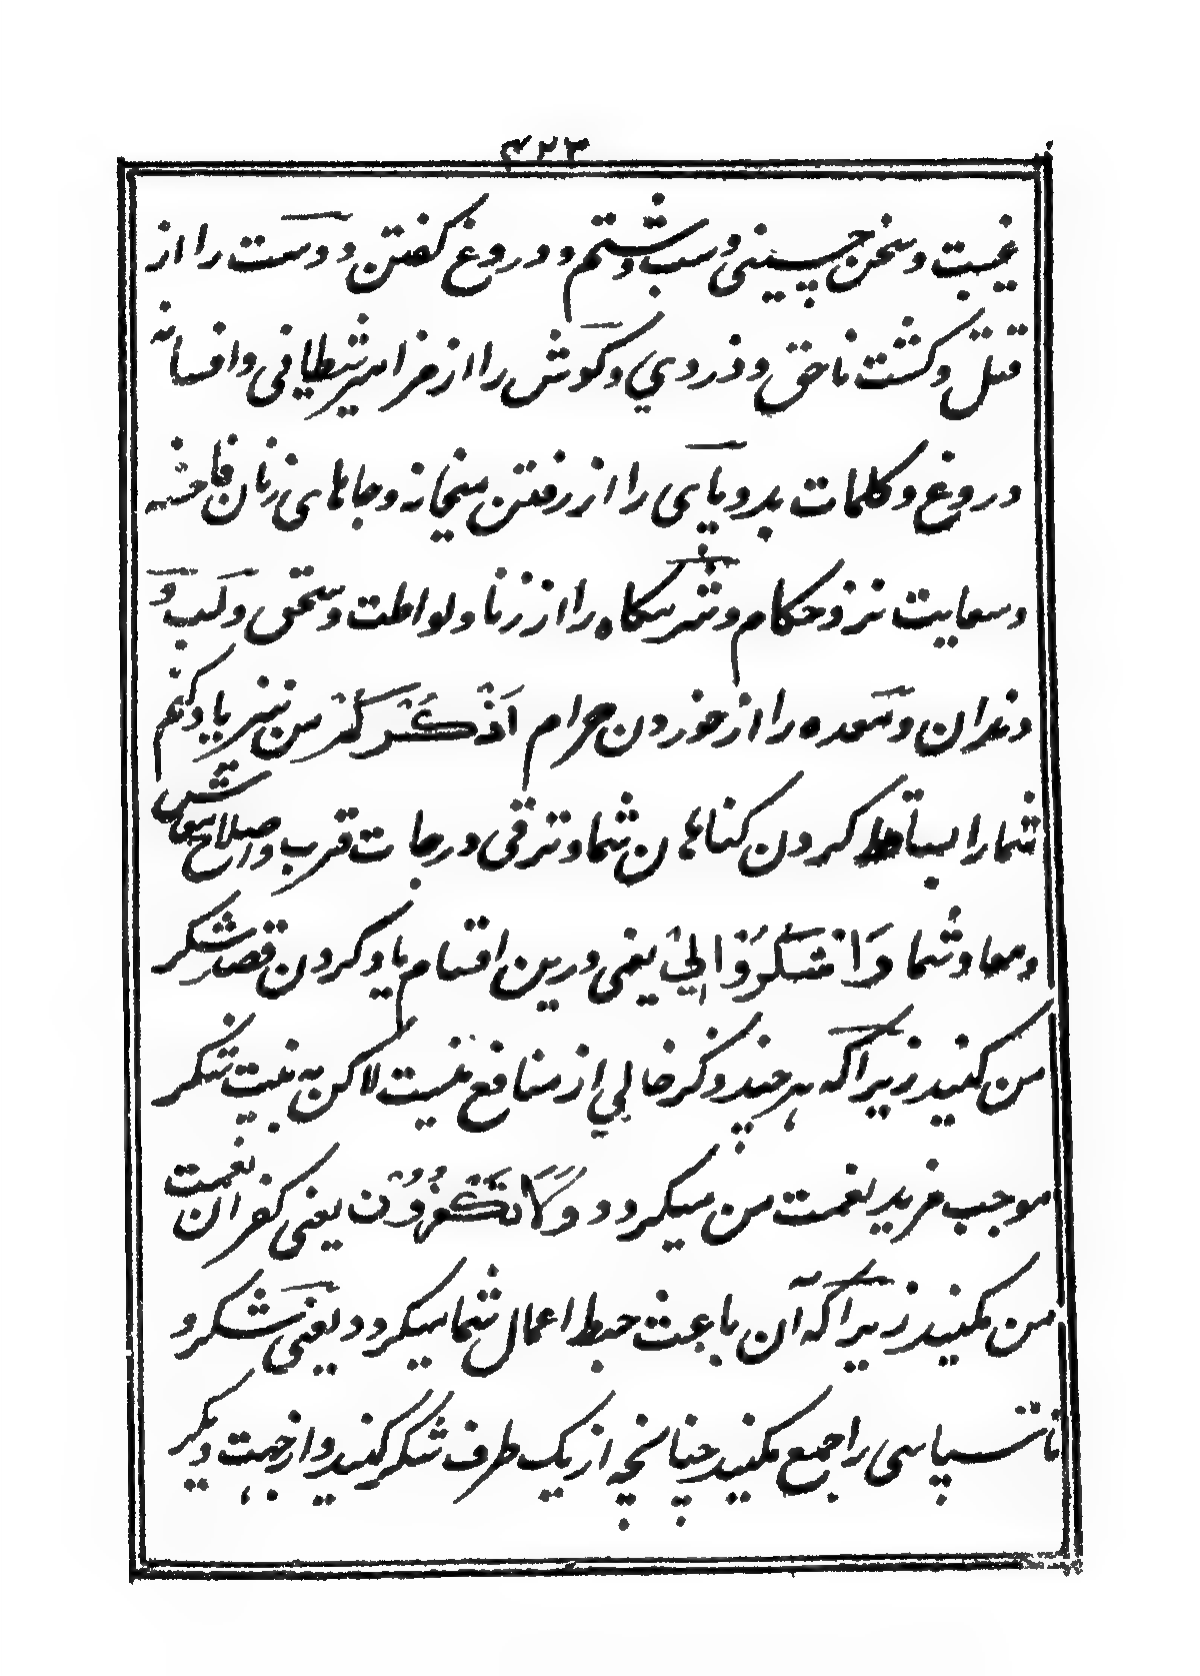 ۴۲۳
غیبت و سخن چینی و سب و شتم و دروغ گفتن و دست را از
قتل و کشت ناحق و دزدی و گوش را از مزامیر شیطانی و افسانه
دروغ و کلمات بد و پای را از رفتن میخانه و جاهای زنان فاحشه
و سعایت نزد حکام و شرمگاه را از زنا و لواطت و سحق و لب و
دندان و معده را از خوردن حرام اَذْکُرْکُمْ من نیز یاد کنم
شما را بساقط کردن گناهان شما و ترقی درجات قرب و اصلاح معاش
و معاد شما وَاشْکُرُوْا لِیْ یعنی درین اقسام یاد کردن قصد شکر
من کنید زیرا که هر چند ذکر خالی از منافع نیست لاکن به نیت شکر
موجب مزید نعمت من میگردد وَلَا تَکْفُرُوْنِ یعنی کفران نعمت
من مکنید زیرا که آن باعث حبط اعمال شما میگردد یعنی شکر و
ناسپاسی را جمع مکنید چنانچه از یک طرف شکر کنید و از جهت دیگر